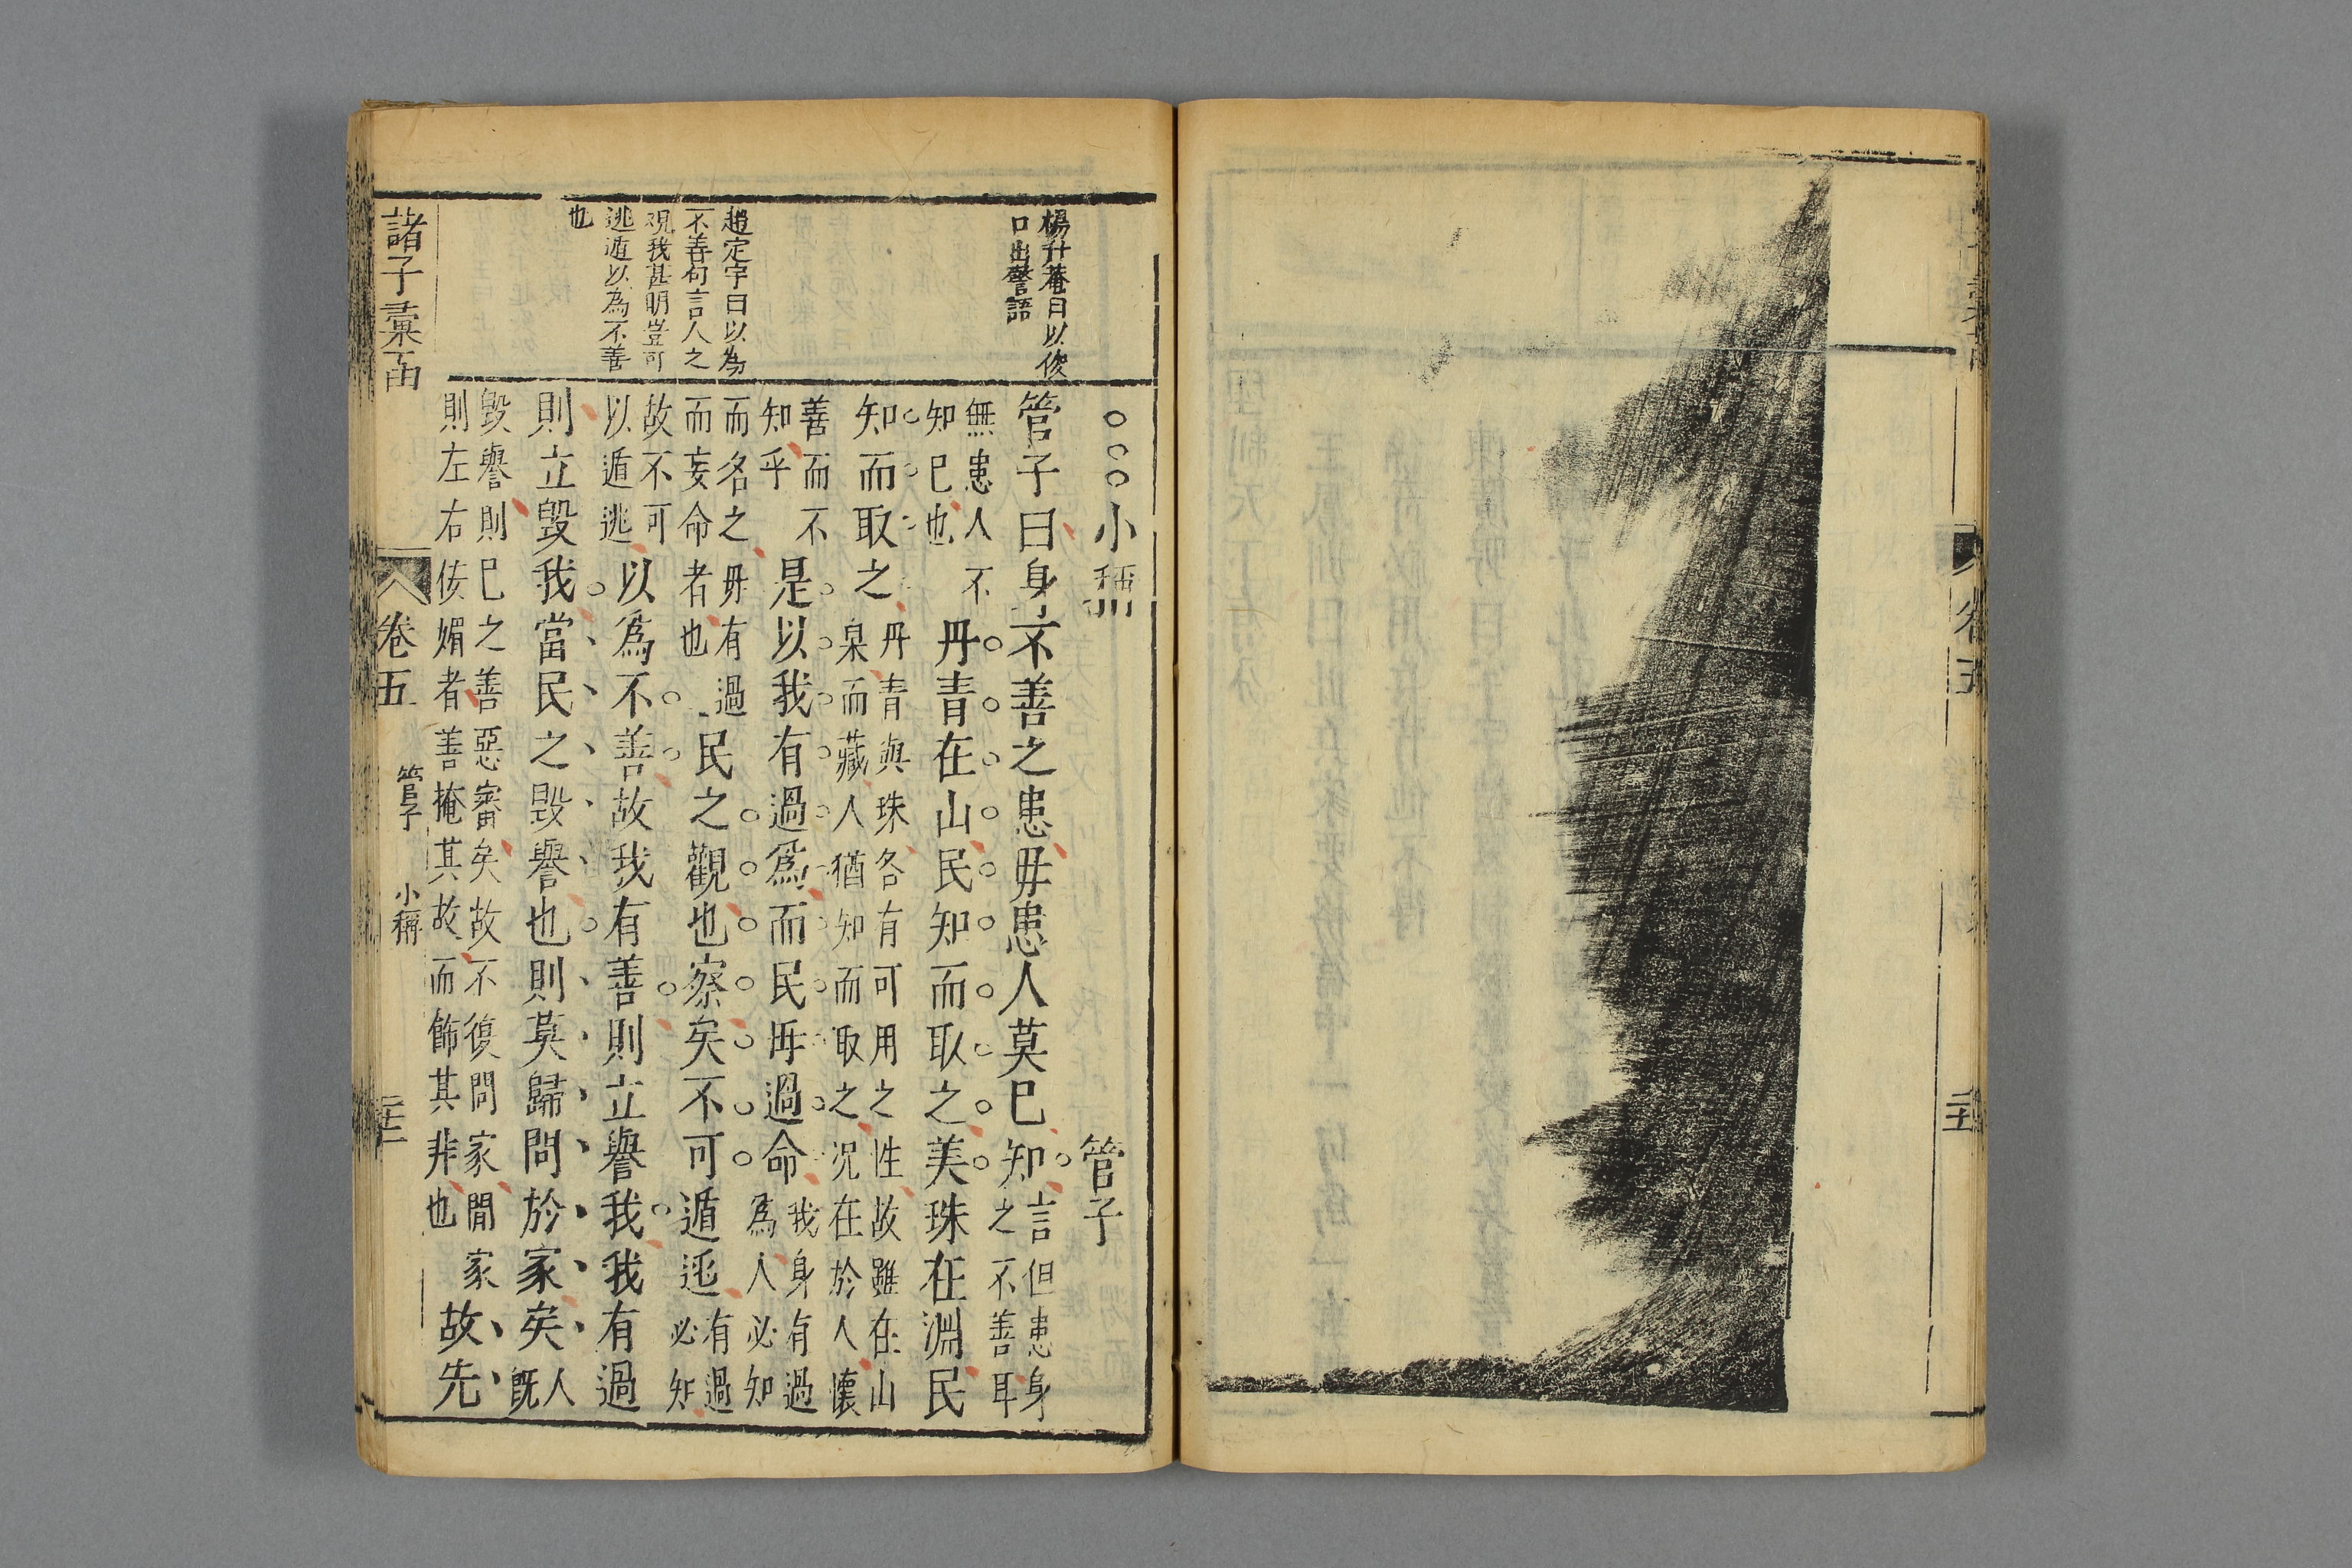 卷五
楊升菴曰以俊
口出警語
趙定宇曰以為
不善句言人之
視我甚明豈可
逃遁以為不善
也
○○○小稱 管子
管子曰身不善之患毋患人莫已知言但患身之不善耳
無患人不知已也丹青在山民知而取之美珠在淵民
知而取之丹青與珠各有可用之性故雖在山泉而藏人猶知而取之况在於人懷
善而不知乎是以我有過爲而民毋過命我身有過爲人必知
而名之毋有過而妄命者也民之觀也察矣不可遁逃有過必知
故不可以遁逃以爲不善故我有善則立譽我我有過
則立毀我當民之毀譽也則莫歸問於家矣人既
毀譽則已之善惡審矣故不復問家問家則左右佞媚者善掩其故而飾其非也故先
諸子彙函 卷五 管子 小稱